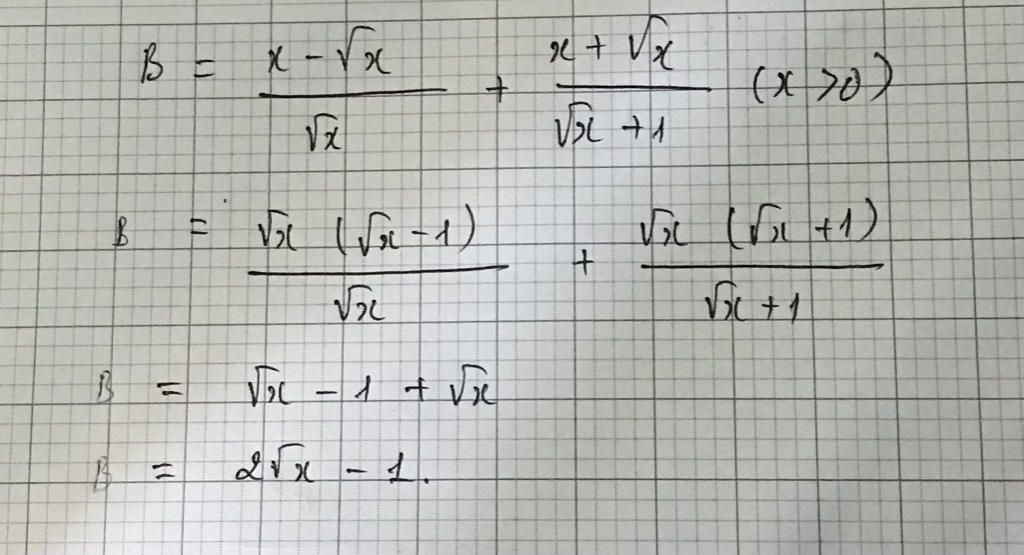 B = (x - √x)/(√x) + (x + √x)/(√x + 1) (x > 0)
B = (√x (√x - 1))/(√x) + (√x (√x + 1))/(√x + 1)
B = √x - 1 + √x
B = 2√x - 1.